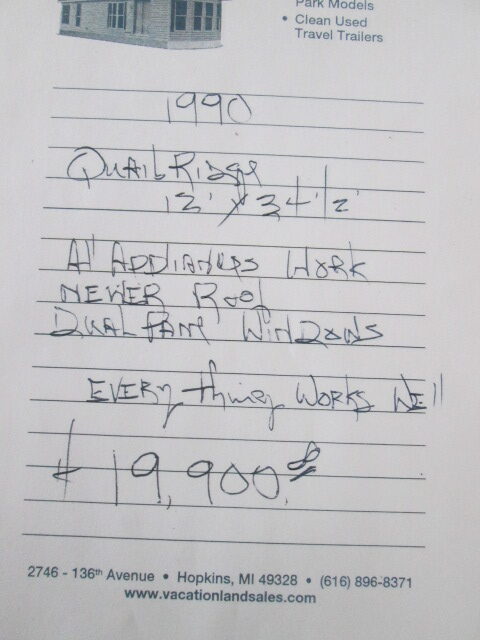 Park Models
• Clean Used
Travel Trailers
1990
Quail Ridge
12' x 34 1/2'
All Appliances Work
Newer Roof
Dual Pane Windows
Everything Works Well
$19,900.00
2746 - 136th Avenue • Hopkins, MI 49328 • (616) 896-8371
www.vacationlandsales.com